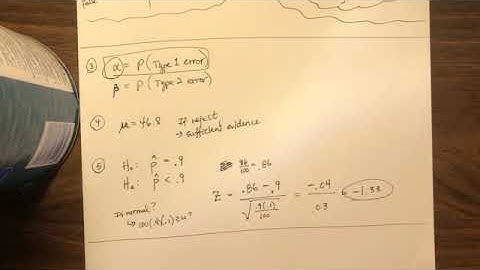 false
③ α = P (Type 1 error)
β = P (Type 2 error)
④ μ = 46.8 If reject
→ sufficient evidence
⑤ H₀: p̂ = .9 86/100 = .86
Hₐ: p̂ < .9
Z = (.86 - .9) / √(.9(.1)/100) = -.04/.03 = -1.33
Is normal?
↳ 100(.9)(.1) ≥ 10?